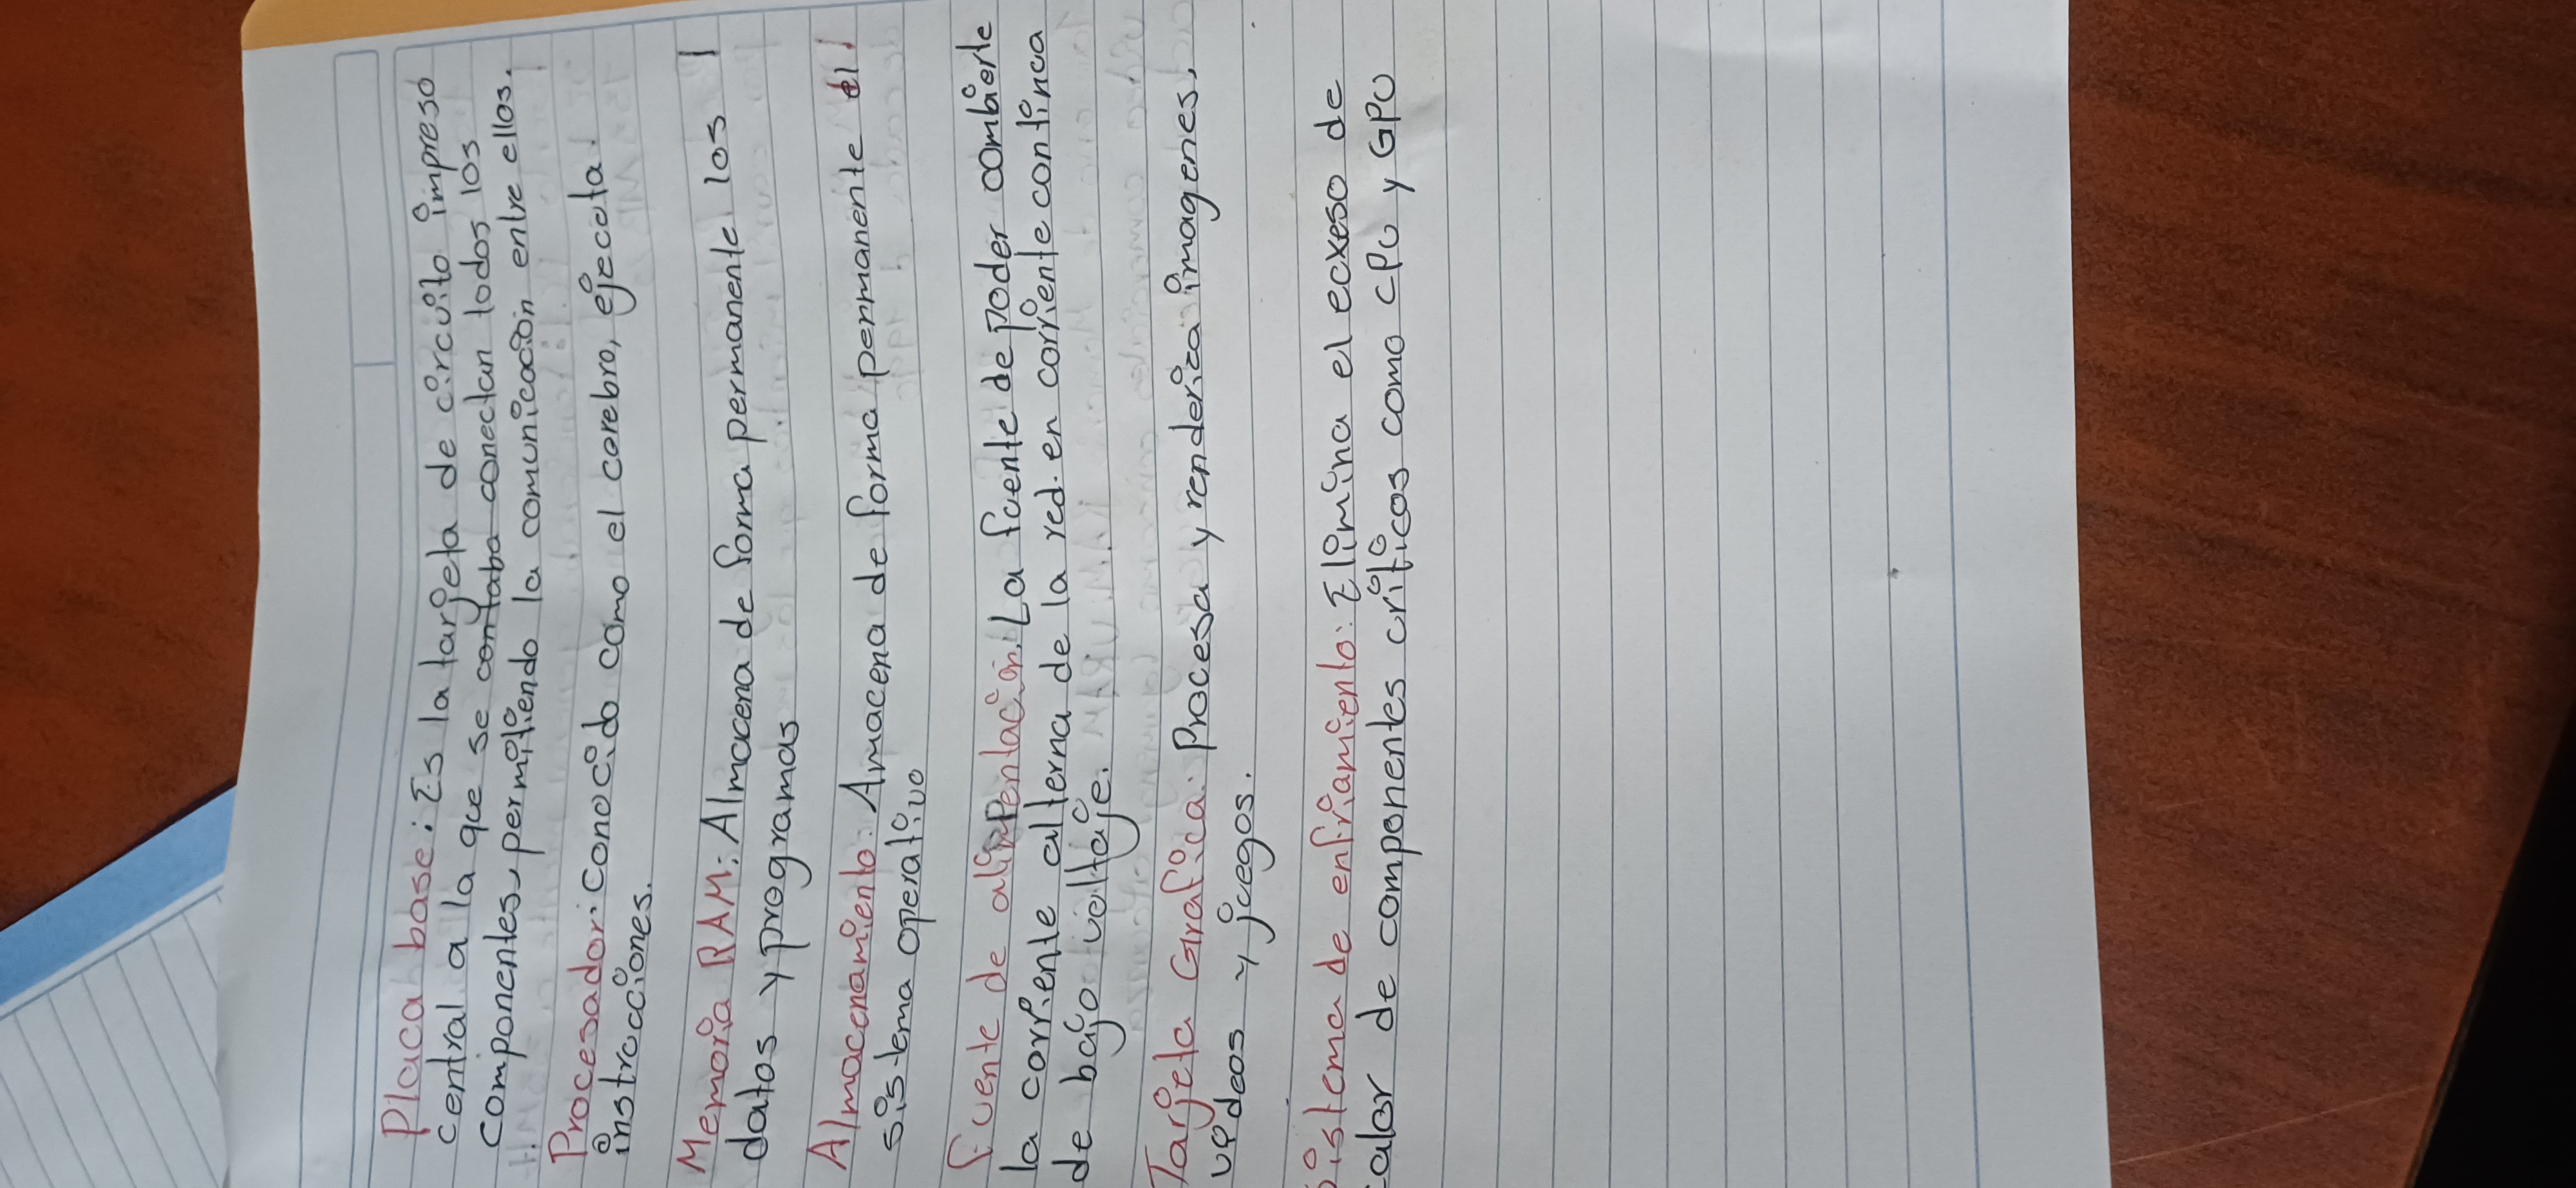 Placa base: Es la tarjeta de circuito impreso
central a la que se contaba conectan todos los
componentes, permitiendo la comunicación entre ellos.
Procesador: Conocido como el corebro, ejecuta
instrucciones.
Memoria RAM: Almacena de forma permanente los
datos y programas
Almacenamiento: Amacena de forma permanente el
sistema operativo
fuente de alimentación. La fuente de poder combierte
la corriente alterna de la red. en corriente continua
de bajo voltaje.
Tarjeta Grafica: Procesa y renderiza imagenes,
videos y juegos.
Sistema de enfriamiento: Elimina el ecxeso de
calor de componentes criticos como CPU y GPU